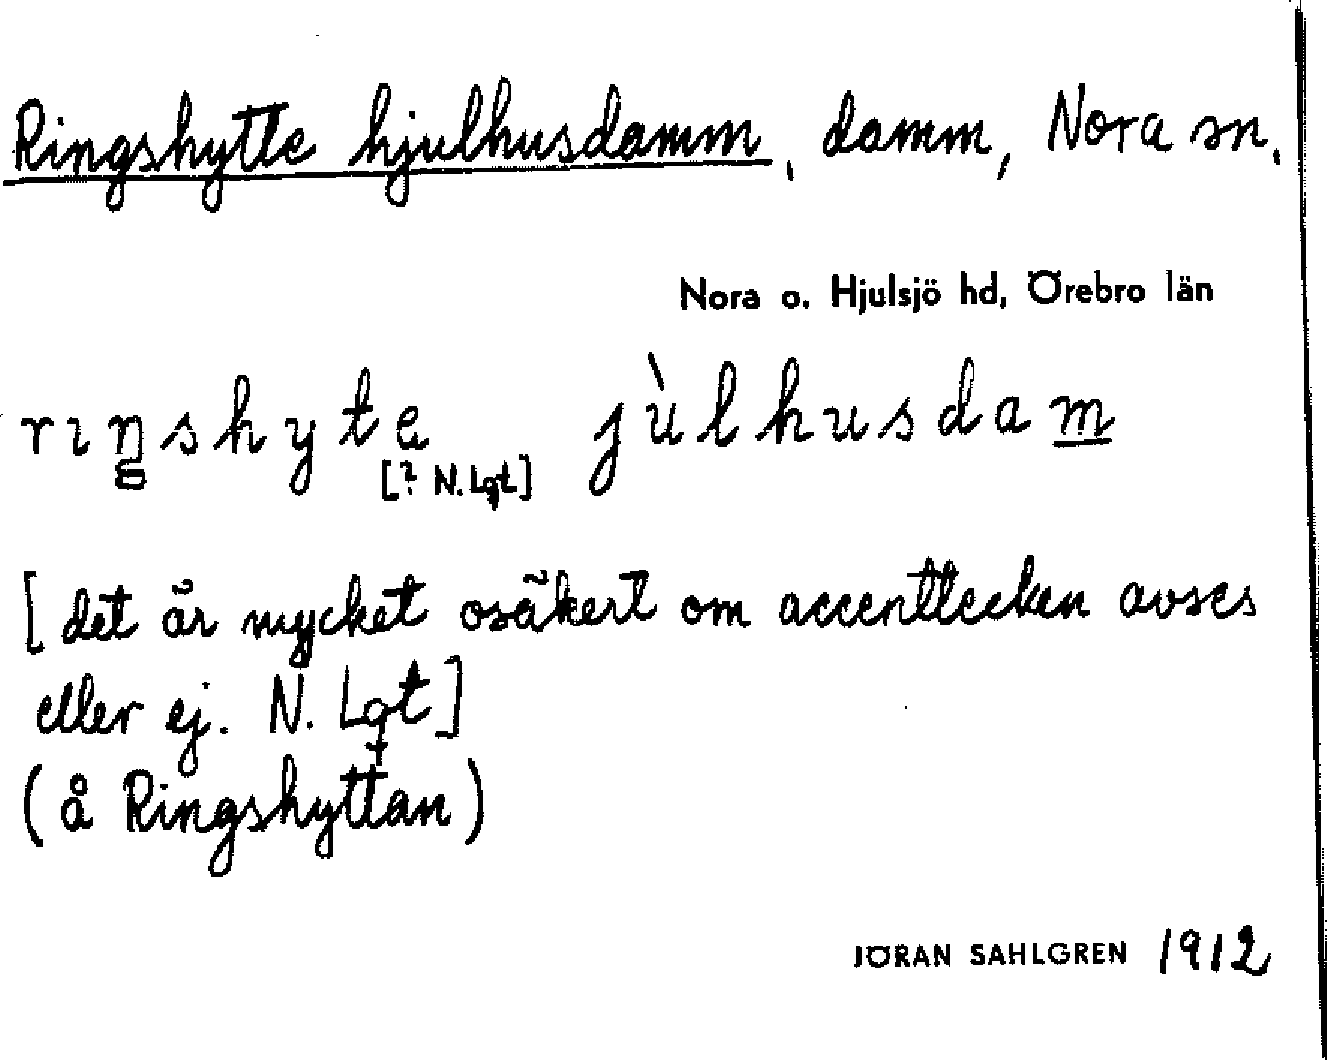 Ringshytte hjulhusdamm, damm, Nora sn.
Nora o. Hjulsjö hd, Örebro län
rıŋshyte jùlhusdam
[? N. Lgt]
[det är mycket osäkert om accenttecken avses
eller ej. N. Lgt]
(å Ringshyttan)
JÖRAN SAHLGREN 1912